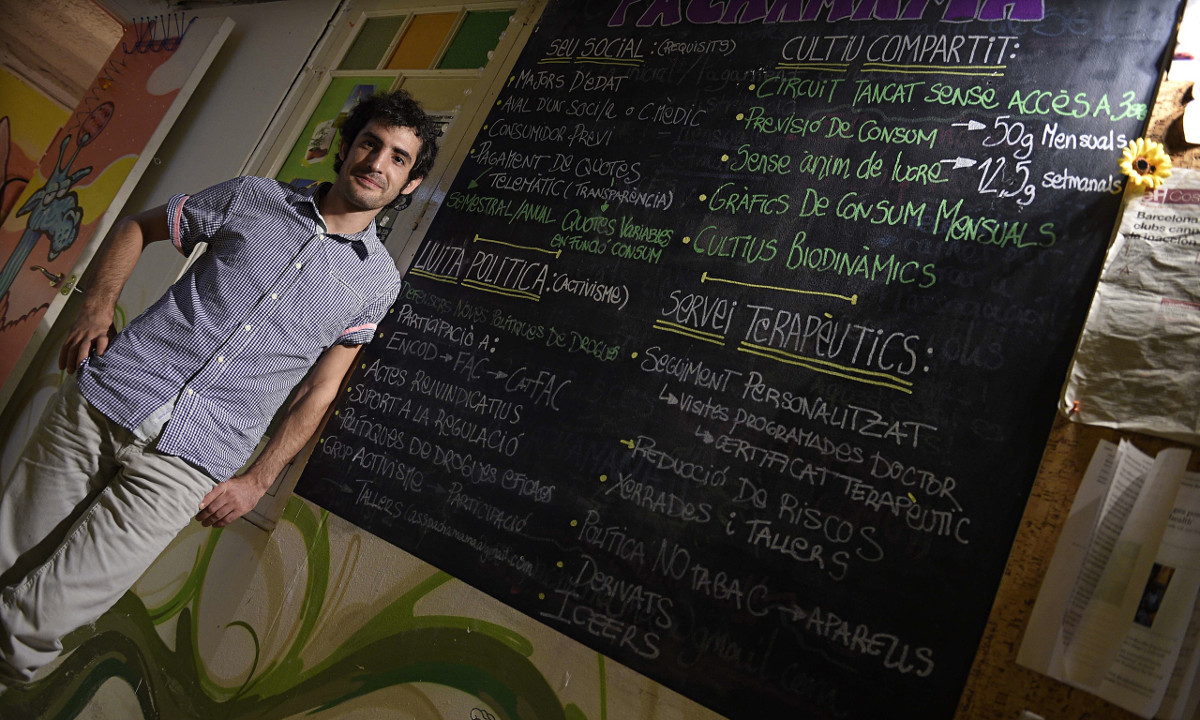 PACHAMAMA
SEU SOCIAL: (REQUISITS)
• MAJORS D'EDAT
• AVAL D'UN SOCI/A O C.MÈDIC
• CONSUMIDOR PREVI
• PAGAMENT DE QUOTES
TELEMÀTIC (TRANSPARÈNCIA)
SEMESTRAL/ANUAL QUOTES VARIABLES
EN FUNCIÓ CONSUM
LLUITA POLÍTICA: (ACTIVISME)
• DEFENSORS NOVES POLÍTIQUES DE DROGUES
• PARTICIPACIÓ A:
ENCOD → FAC → CATFAC
• ACTES REIVINDICATIUS
• SUPORT A LA REGULACIÓ
• POLÍTIQUES DE DROGUES EFICACES
• GRUP ACTIVISME → PARTICIPACIÓ
→ TALLERS
CULTIU COMPARTIT:
• CIRCUIT TANCAT SENSE ACCÉS A 3ers
• PREVISIÓ DE CONSUM → 50g MENSUALS
• SENSE ÀNIM DE LUCRE → 12,5g SETMANALS
• GRÀFICS DE CONSUM MENSUALS
• CULTIUS BIODINÀMICS
SERVEI TERAPÈUTICS:
• SEGUIMENT PERSONALITZAT
↳ VISITES PROGRAMADES DOCTOR
↳ CERTIFICAT TERAPÈUTIC
• REDUCCIÓ DE RISCOS
• XERRADES I TALLERS
• POLÍTICA NO TABAC → APARELLS
• DERIVATS
• ICEERS
Barcelona
clubs